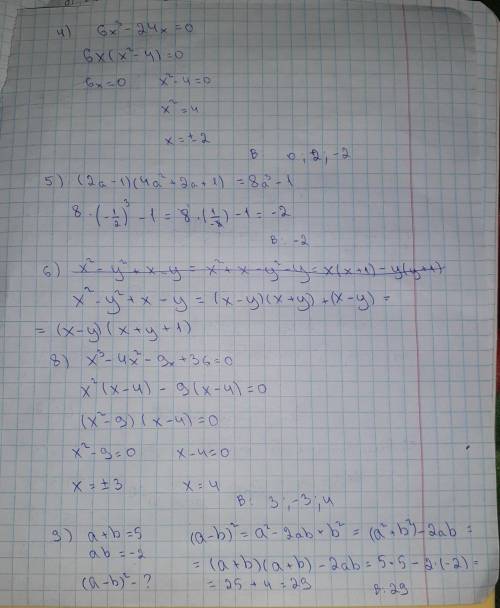 4) 6x³ - 24x = 0
6x(x² - 4) = 0
6x = 0 x² - 4 = 0
x² = 4
x = ± 2
В 0 ; 2 ; -2
5) (2a - 1)(4a² + 2a + 1) = 8a³ - 1
8 · (-1/2)³ - 1 = 8 · (1/-8) - 1 = -2
В: -2
6) x² - y² + x - y = x² + x - y² - y = x(x+1) - y(y+1)
x² - y² + x - y = (x-y)(x+y) + (x-y) =
= (x-y)(x+y+1)
8) x³ - 4x² - 9x + 36 = 0
x²(x-4) - 9(x-4) = 0
(x² - 9)(x-4) = 0
x² - 9 = 0 x - 4 = 0
x = ± 3 x = 4
В: 3 ; -3 ; 4
9) a + b = 5 (a-b)² = a² - 2ab + b² = (a² + b²) - 2ab =
ab = -2 = (a+b)(a+b) - 2ab = 5 · 5 - 2 · (-2) =
(a-b)² - ? = 25 + 4 = 29
В: 29